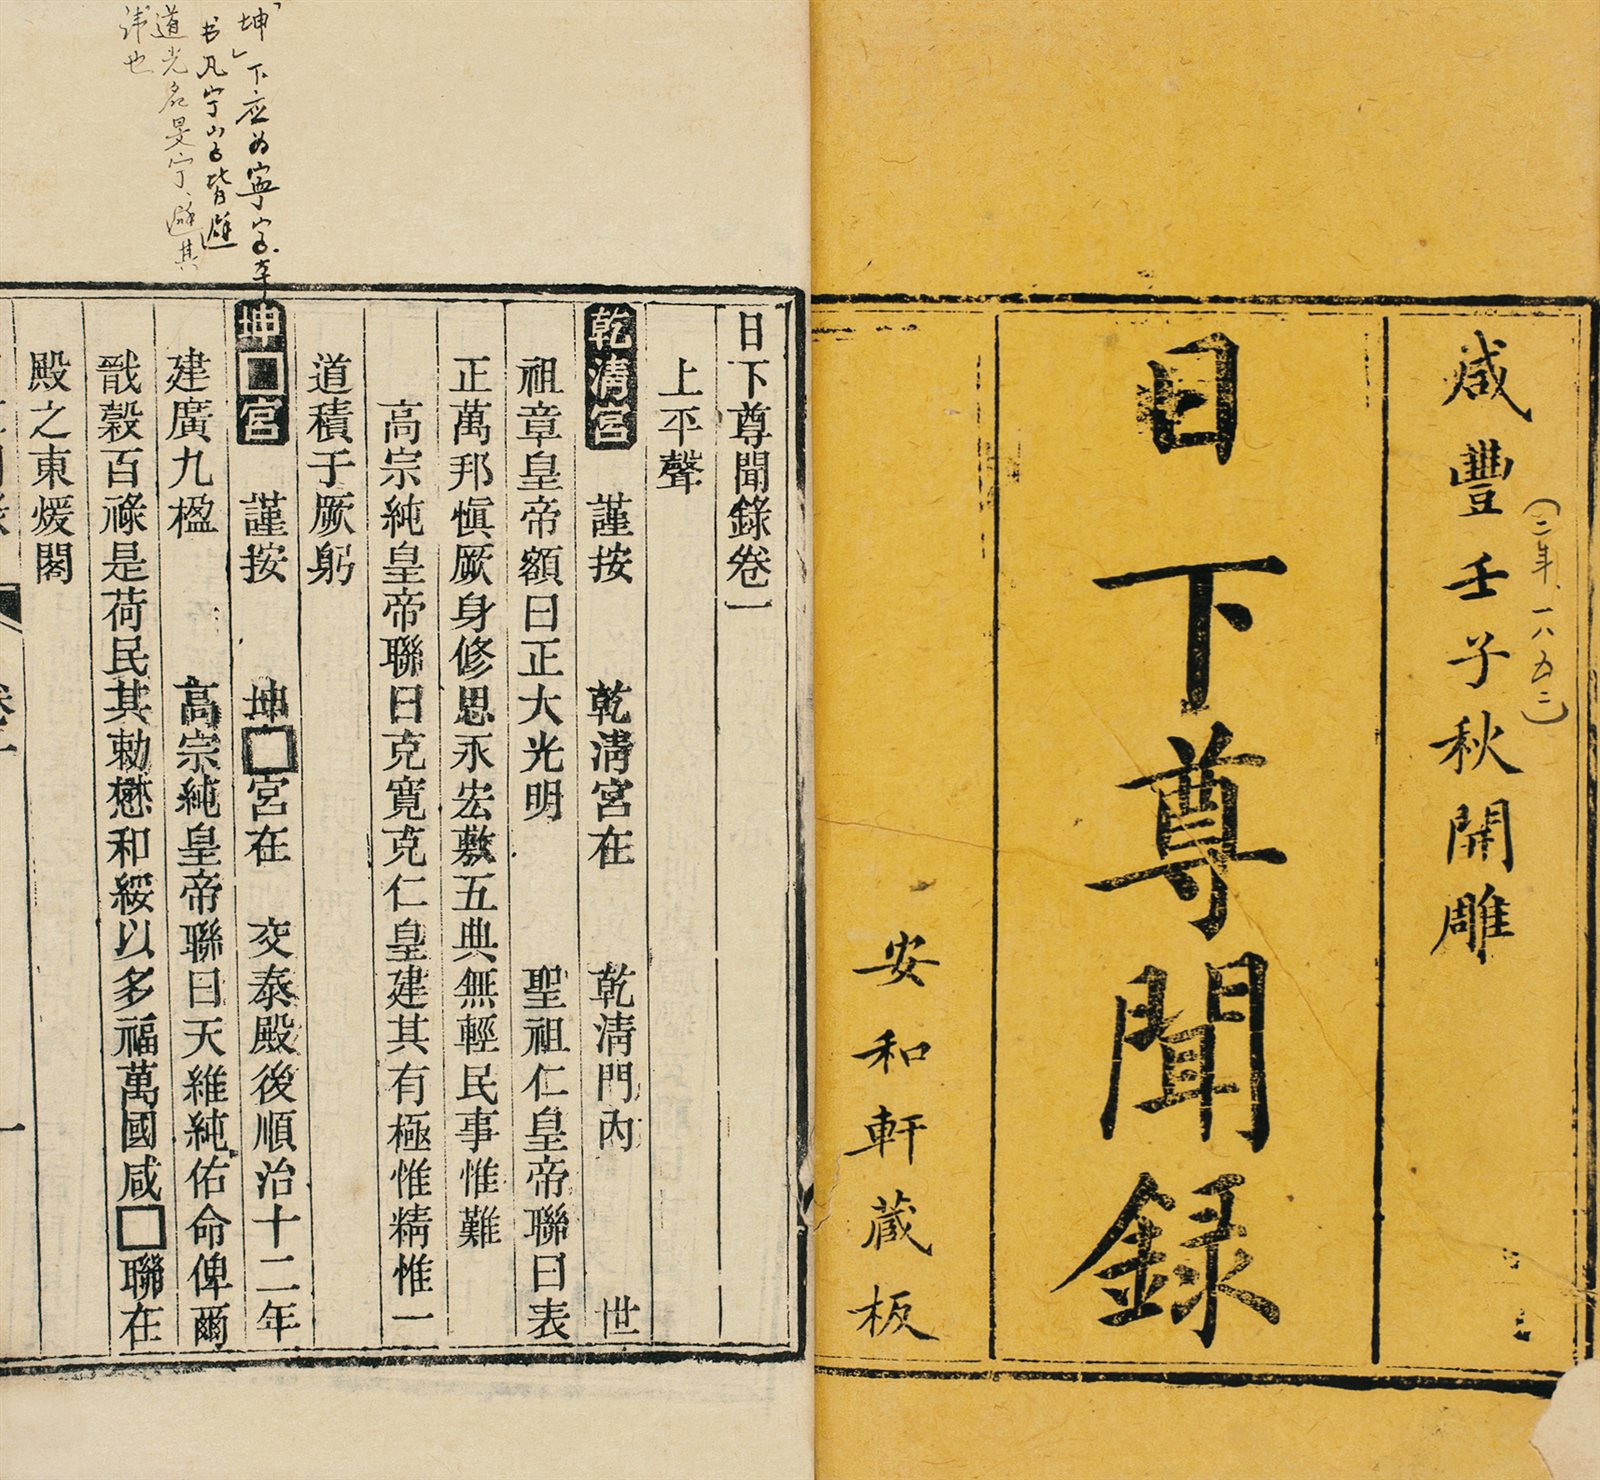 咸豐壬子秋開雕
(二年、一八五二)
日下尊聞録
安和軒藏板
日下尊聞錄卷一
上平聲
乾清宮 謹按 乾淸宮在 乾淸門內 世
祖章皇帝額曰正大光明 聖祖仁皇帝聯曰表
正萬邦愼厥身修思永宏敷五典無輕民事惟難
高宗純皇帝聯曰克寬克仁皇建其有極惟精惟一
道積于厥躬
坤□宮 謹按 坤□宮在 交泰殿後順治十二年
建廣九楹 高宗純皇帝聯曰天維純佑命俾爾
戩穀百祿是荷民其勅懋和綏以多福萬國咸□聯在
殿之東煖閣
「坤」下应为寧字本
书凡宁字皆避
道光名旻宁、避其
讳也
卷一
一